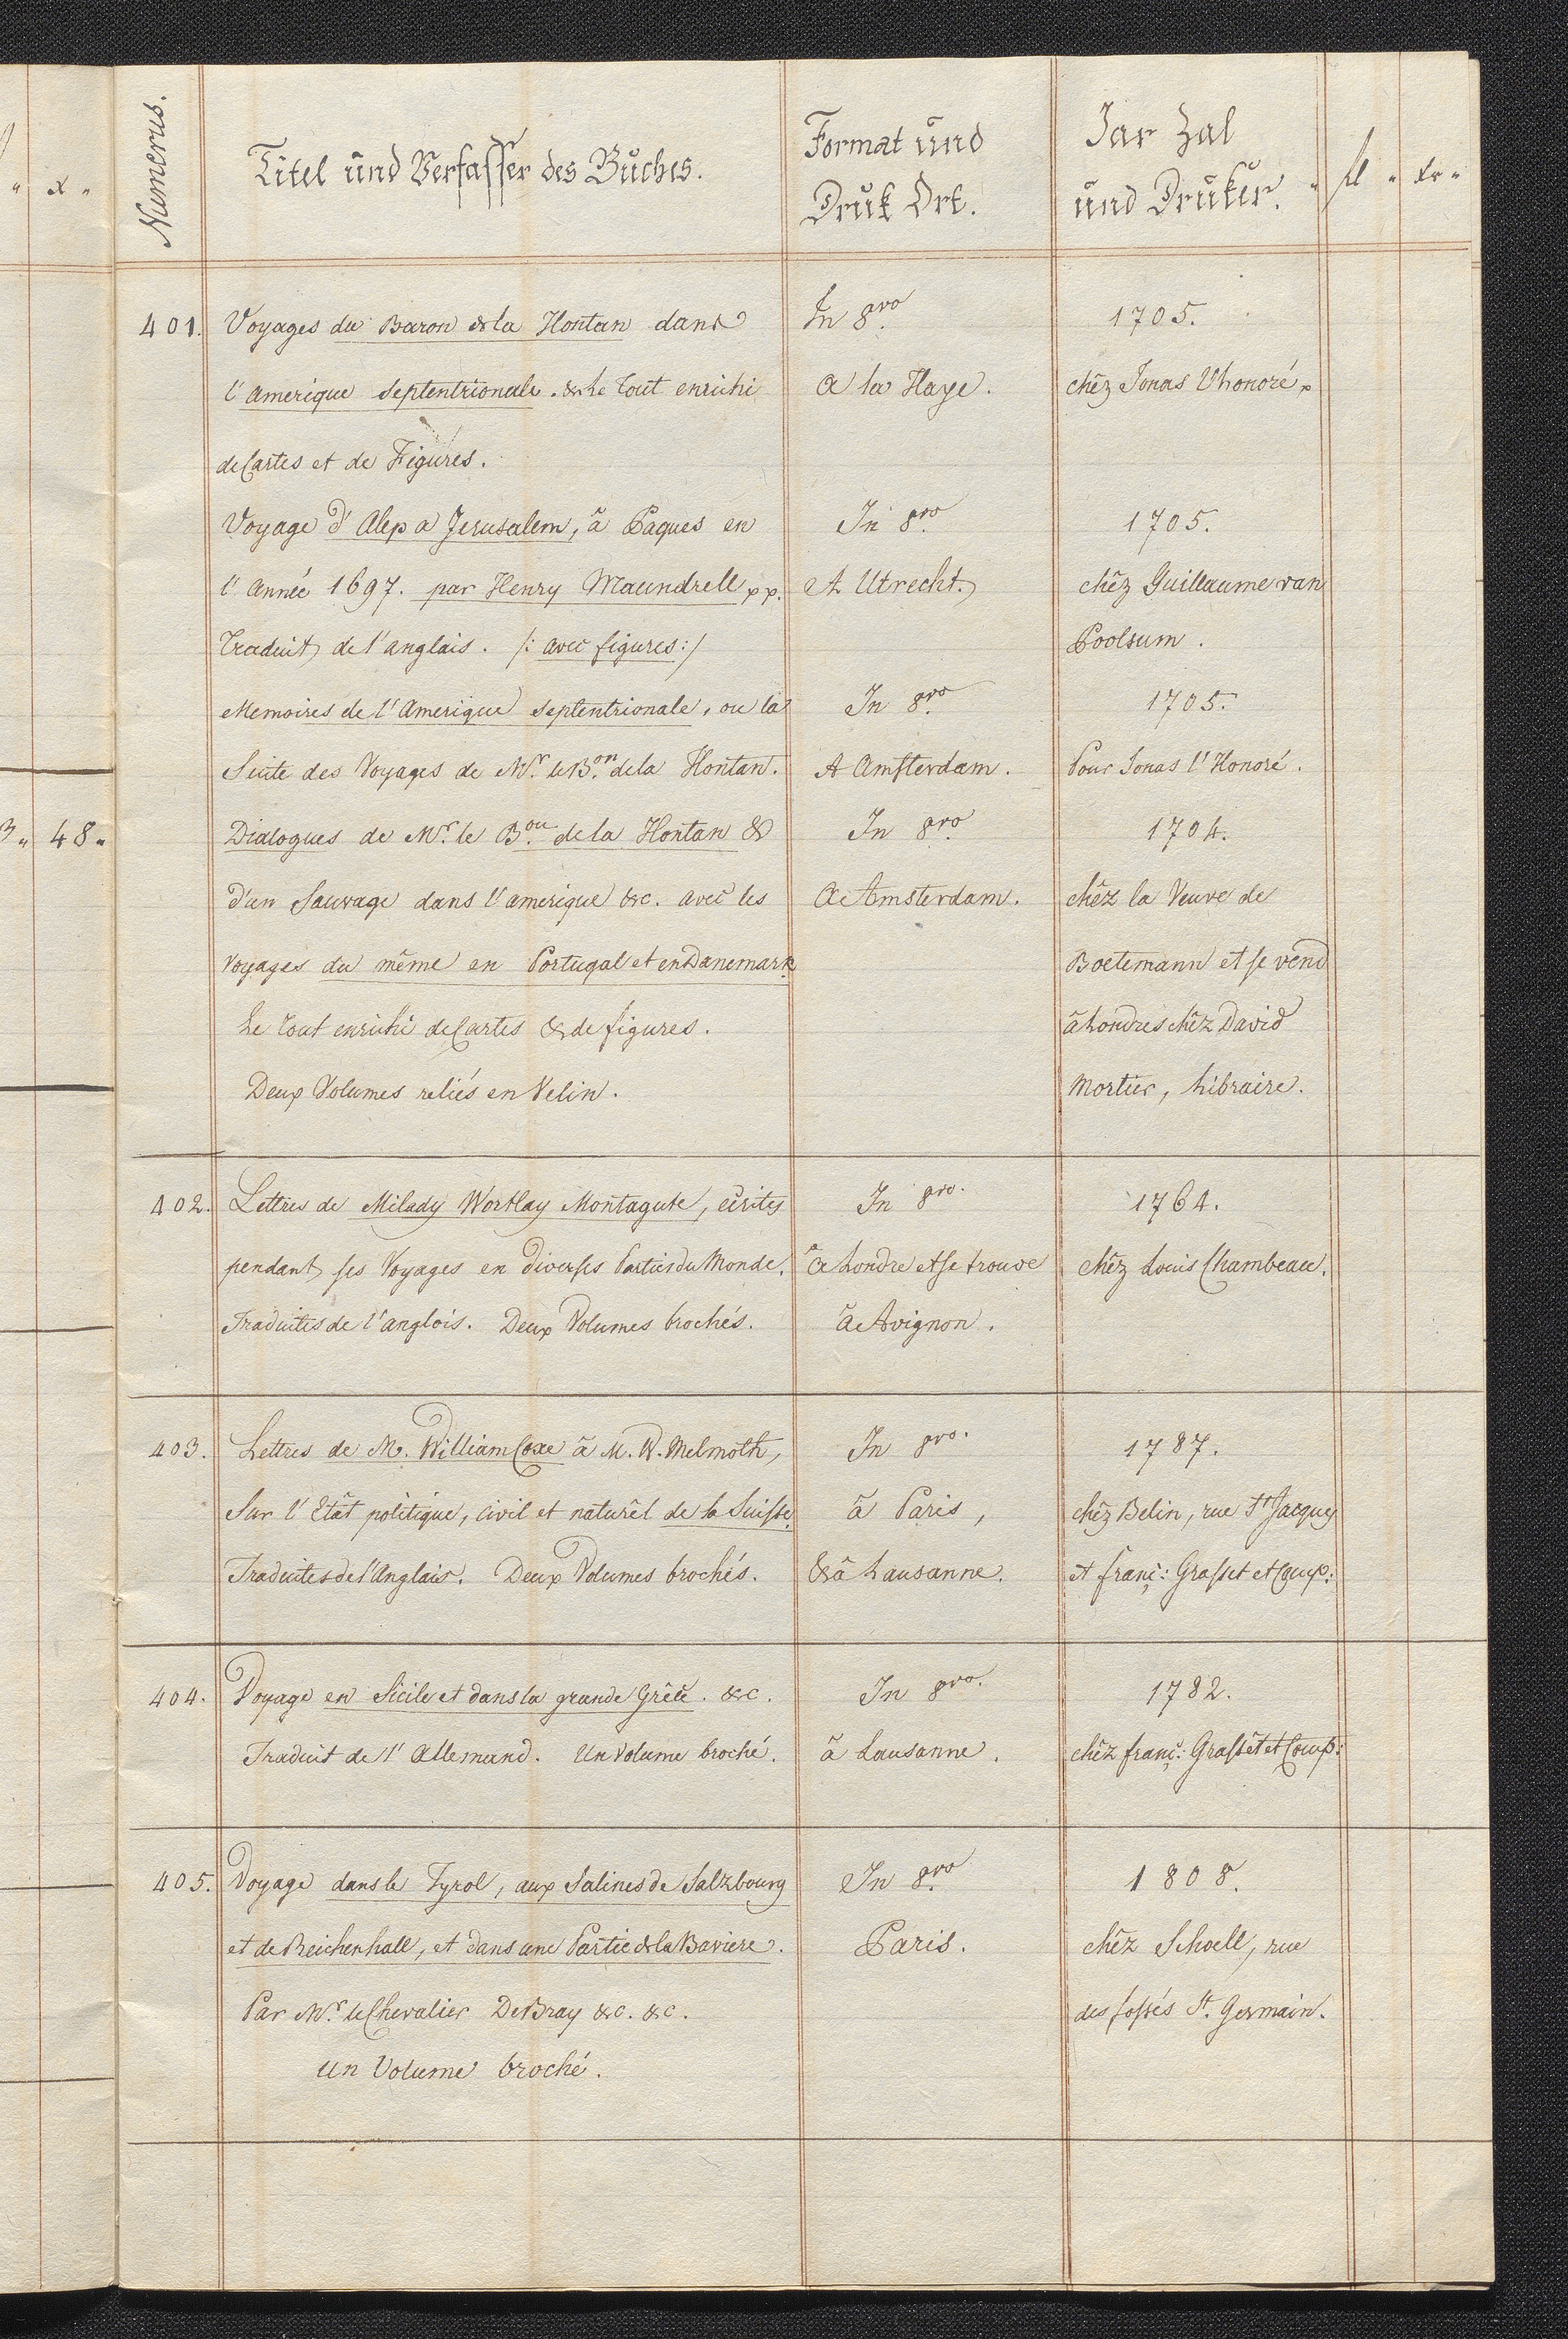 Numerus.
Titel und Verfasser des Buches.
Format und
Druk Ort.
Jar Zal
und Druker.
" fl " Xr "
" x "
3 " 48 "
401. Voyages du Baron de la Hontan dans
l'amerique septentrionale. & Le tout enrichi
de Cartes et de Figures.
In 8vo.
a la Haye.
1705.
chêz Jonas l'honoré p
Voyage d'Alep a Jerusalem, â Paques en
l'Année 1697. par Henry Maundrell pp.
traduit de l'anglais. /: avec figures :/
In 8vo.
A Utrecht.
1705.
chêz Guillaume van
Poolsum.
Memoires de l'Amerique septentrionale, ou la
Suite des Voyages de Mr. le Bon. de la Hontan.
In 8vo.
A Amsterdam.
1705.
Pour Jonas l'Honoré.
Dialogues de Mr. le Bou. de la Hontan &
d'un Sauvage dans l'amerique &c. avec les
voyages du même en Portugal et en Danemark
Le tout enrichi de Cartes & de figures.
Deux Volumes reliés en Velin.
In 8vo.
A Amsterdam.
1704.
chêz la Veuve de
Boetemann et se vend
â Londres chêz David
Mortier, Libraire.
402. Lettres de Milady Wortlay Montagute, ecrites
pendant ses Voyages en diverses Parties du Monde.
Traduites de l'anglois. Deux Volumes brochés.
In 8vo.
â Londre et se trouve
â Avignon.
1764.
chêz Louis Chambeau.
403. Lettres de M. William Coxe â M. W. Melmoth,
Sur l'Etât politique, civil et naturêl de la Suisse.
Traduites de l'Anglais. Deux Volumes brochés.
In 8vo.
â Paris,
& â Lausanne.
1787.
chêz Belin, rue St Jacques
et franç: Grasset et Comp:
404. Voyage en Sicile et dans la grande Grêce. &c.
Traduit de l'Allemand. Un Volume broché.
In 8vo.
â Lausanne.
1782.
chêz franç: Grassêt et Comp:
405. Voyage dans le Tyrol, aux Salines de Salzbourg
et de Reichenhall, et dans une Partie de la Baviere.
Par Mr. le Chevalier De Bray &c. &c.
Un Volume broché.
In 8vo.
Paris.
1808.
chêz Schoell, rue
des fossés St. Germain.